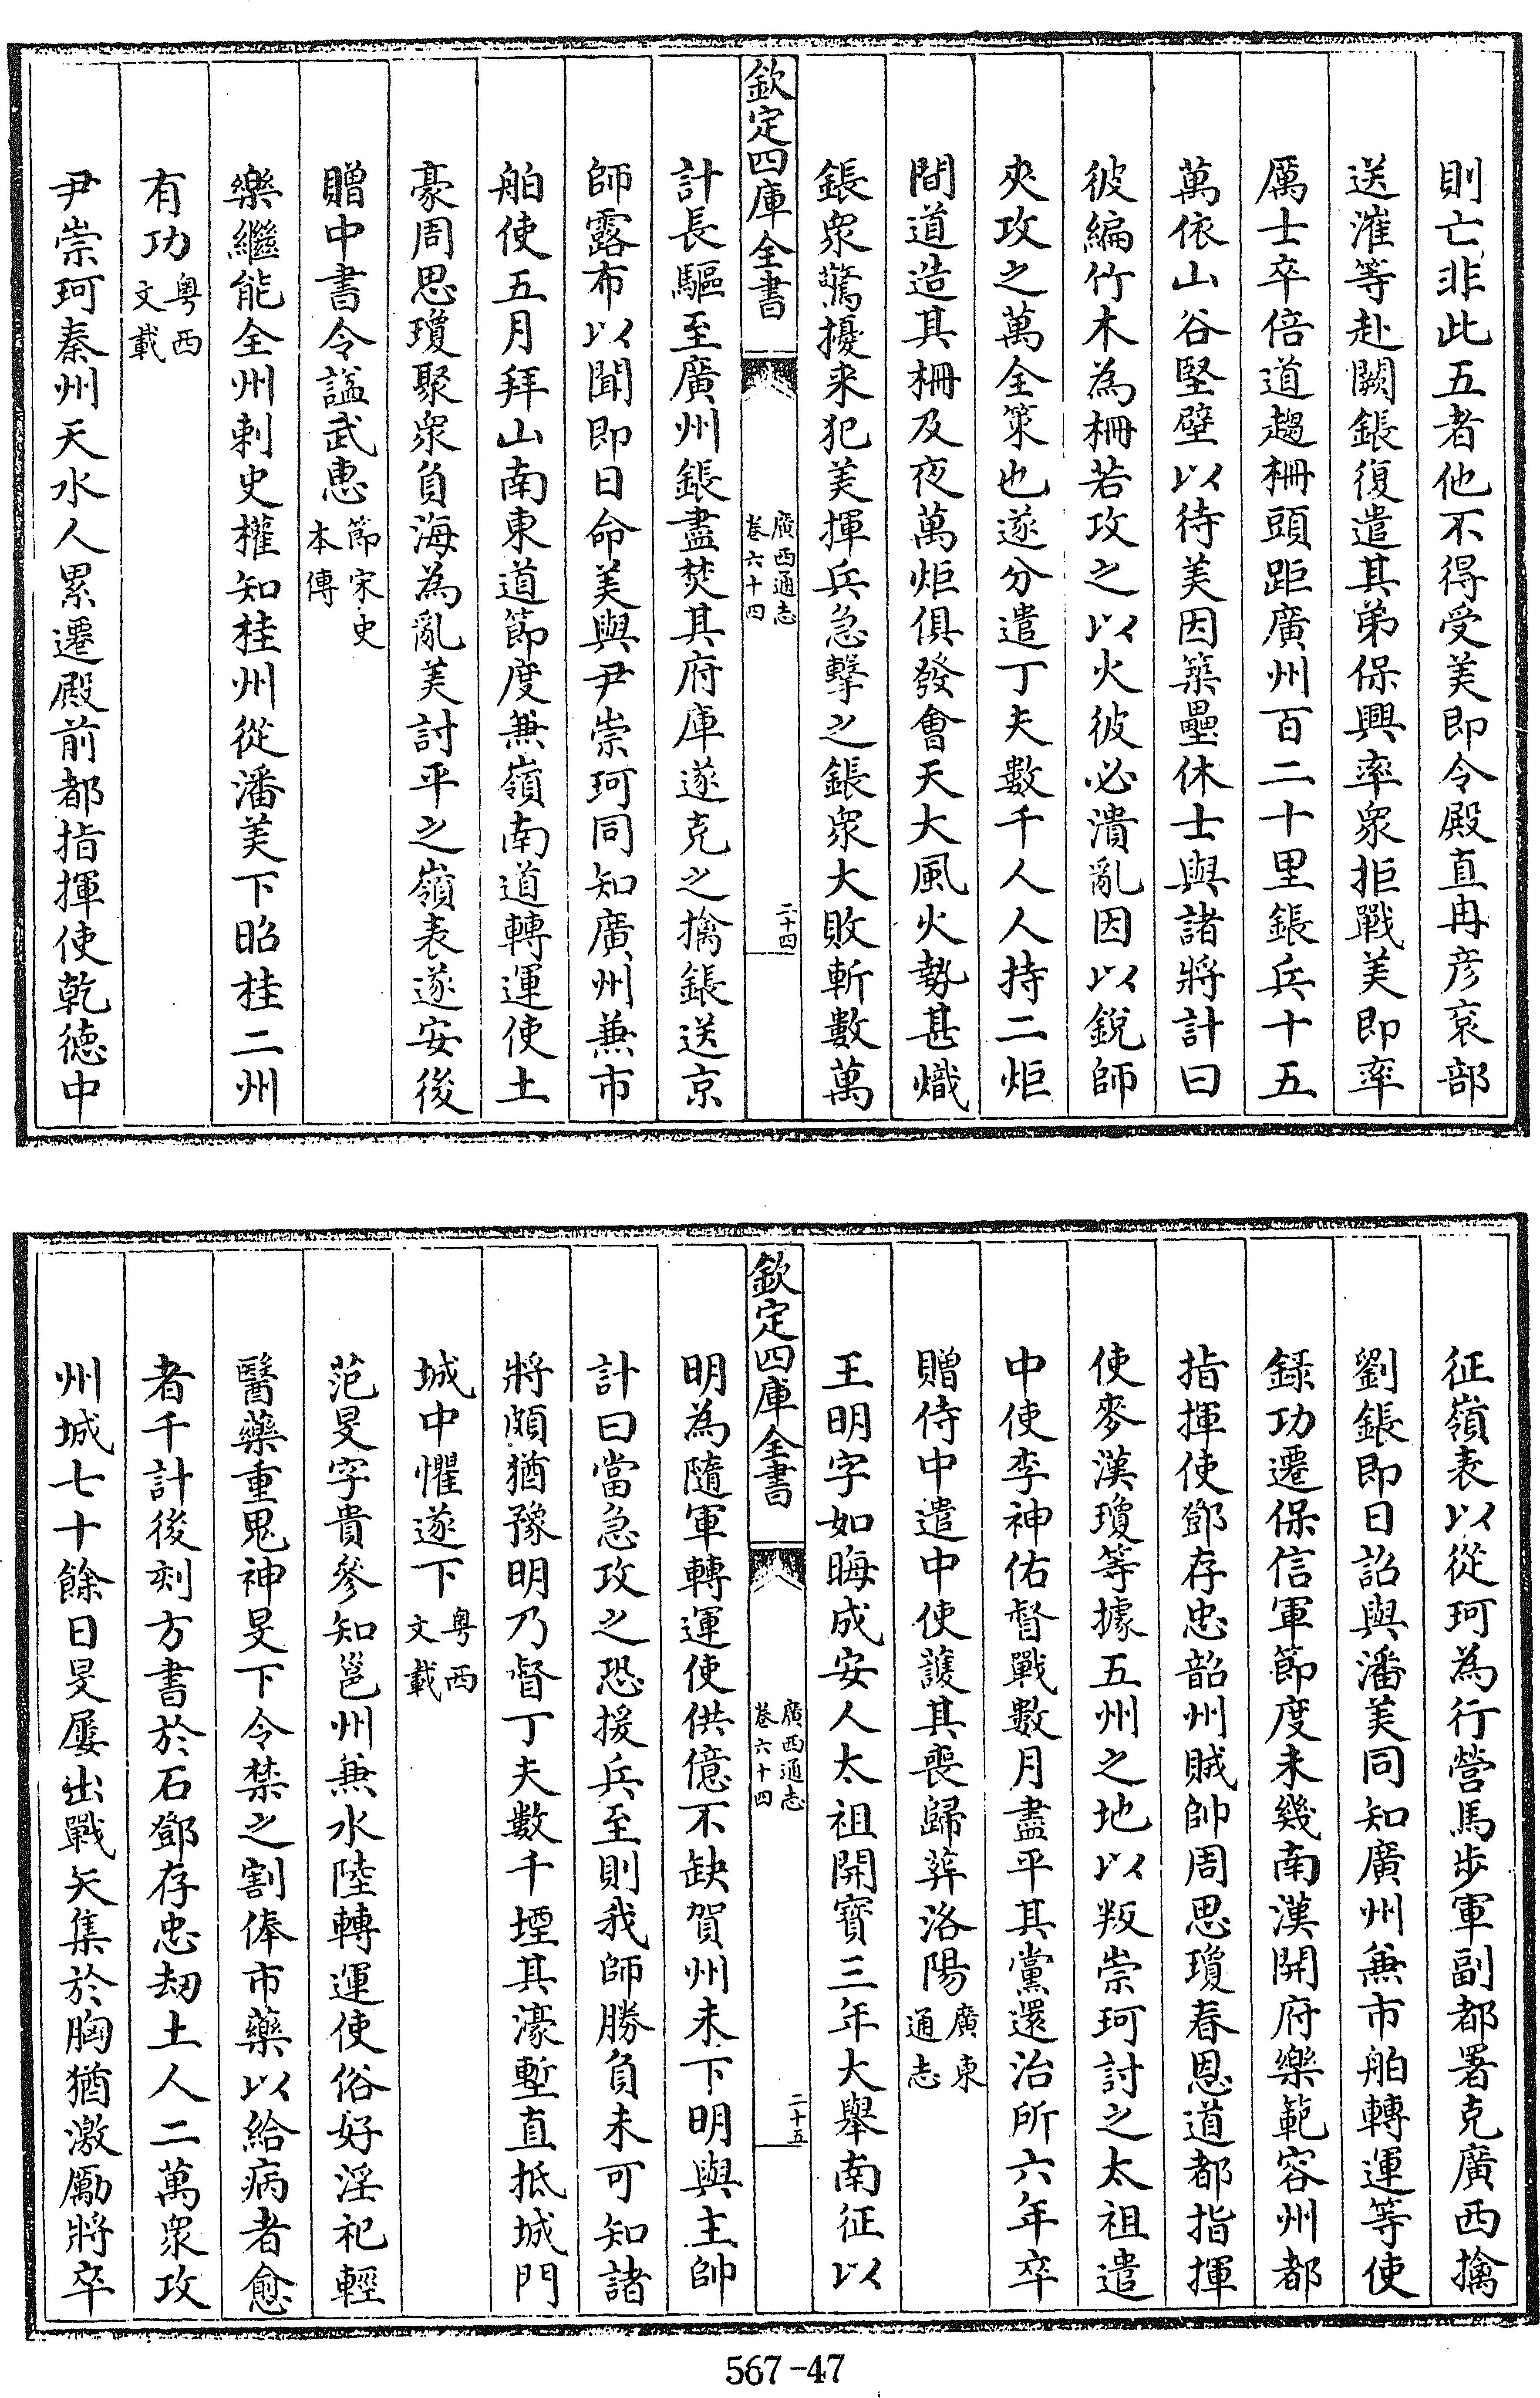 則亡非此五者他不得受美即令殿直冉彦衮部
送漼等赴闕鋹復遣其弟保興率衆拒戰美即率
厲士卒倍道趨柵頭距廣州百二十里鋹兵十五
萬依山谷堅壁以待美因築壘休士與諸將計曰
彼編竹木為柵若攻之以火彼必潰亂因以銳師
夾攻之萬全策也遂分遣丁夫數千人人持二炬
間道造其柵及夜萬炬俱發會天大風火勢甚熾
鋹衆驚擾来犯美揮兵急擊之鋹衆大敗斬數萬
欽定四庫全書
廣西通志
卷六十四
二十四
計長驅至廣州鋹盡焚其府庫遂克之擒鋹送京
師露布以聞即日命美與尹崇珂同知廣州兼市
舶使五月拜山南東道節度兼嶺南道轉運使土
豪周思瓊聚衆負海為亂美討平之嶺表遂安後
贈中書令諡武惠節宋史
本傳
樂繼能全州刺史權知桂州從潘美下昭桂二州
有功粤西
文載
尹崇珂秦州天水人累遷殿前都指揮使乾德中
征嶺表以從珂為行營馬步軍副都署克廣西擒
劉鋹即日詔與潘美同知廣州兼市舶轉運等使
錄功遷保信軍節度未幾南漢開府樂範容州都
指揮使鄧存忠韶州賊帥周思瓊春恩道都指揮
使麥漢瓊等據五州之地以叛崇珂討之太祖遣
中使李神佑督戰數月盡平其黨還治所六年卒
贈侍中遣中使護其喪歸葬洛陽廣東
通志
王明字如晦成安人太祖開寳三年大舉南征以
欽定四庫全書
廣西通志
卷六十四
二十五
明為隨軍轉運使供億不缺賀州未下明與主帥
計曰當急攻之恐援兵至則我師勝負未可知諸
將頗猶豫明乃督丁夫數千堙其濠塹直抵城門
城中懼遂下粤西
文載
范旻字貴參知邕州兼水陸轉運使俗好淫祀輕
醫藥重鬼神旻下令禁之割俸市藥以給病者愈
者千計後刻方書於石鄧存忠刼土人二萬衆攻
州城七十餘日旻屢出戰矢集於胸猶激勵將卒
567-47